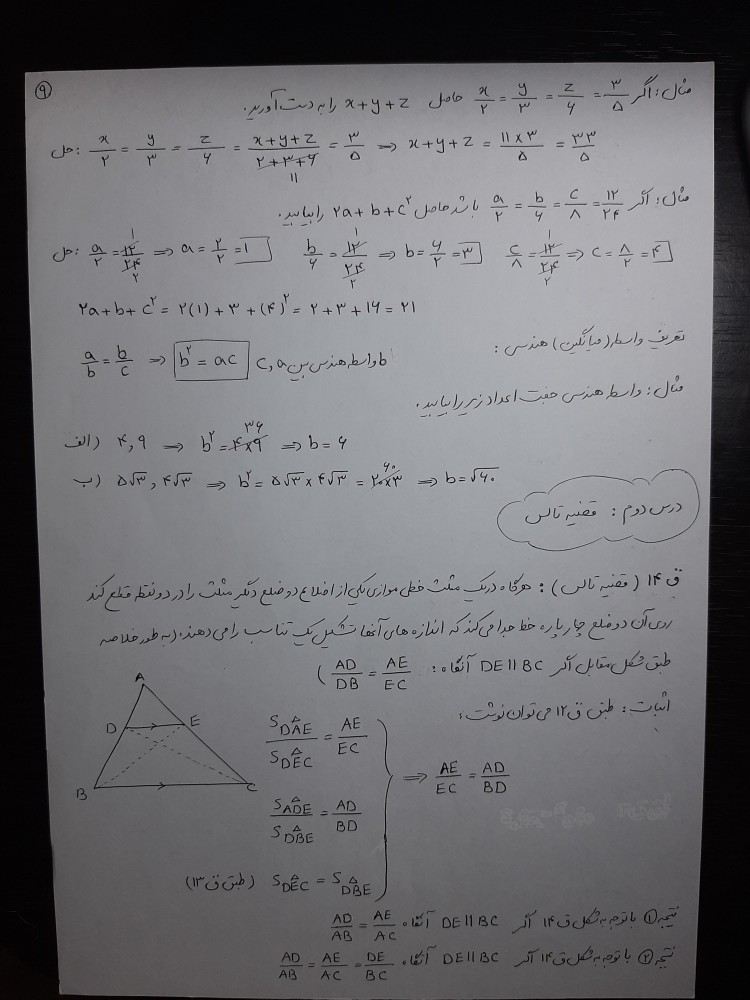 ۹
مثال: اگر x/۲ = y/۳ = z/۶ = ۳/۵ حاصل x+y+z را به دست آورید.
حل: x/۲ = y/۳ = z/۶ = (x+y+z)/(۲+۳+۶) = ۳/۵ ⇒ x+y+z = (۱۱×۳)/۵ = ۳۳/۵
۱۱
مثال: اگر a/۲ = b/۶ = c/۸ = ۱۲/۲۴ باشد حاصل ۲a+b+c^۲ را بیابید.
حل: a/۲ = ۱۲/۲۴ ⇒ a = ۲/۲ = ۱ b/۶ = ۱۲/۲۴ ⇒ b = ۶/۲ = ۳ c/۸ = ۱۲/۲۴ ⇒ c = ۸/۲ = ۴
۲a+b+c^۲ = ۲(۱)+۳+(۴)^۲ = ۲+۳+۱۶ = ۲۱
تعریف واسطه (میانگین) هندسی:
a/b = b/c ⇒ b^۲ = ac b واسطه هندسی بین a, c
مثال: واسطه هندسی جفت اعداد زیر را بیابید.
الف) ۴,۹ ⇒ b^۲ = ۴×۹ ⇒ b = ۶
۳۶
ب) ۵√۳, ۴√۳ ⇒ b^۲ = ۵√۳ × ۴√۳ = ۲۰×۳ ⇒ b = √۶۰
۶۰
درس دوم: قضیه تالس
ق ۱۴ (قضیه تالس): هرگاه در یک مثلث خطی موازی یکی از اضلاع دو ضلع دیگر مثلث را در دو نقطه قطع کند
روی آن دو ضلع چهار پاره خط جدا می کند که اندازه های آنها تشکیل یک تناسب را می دهند. (به طور خلاصه
طبق شکل مقابل اگر DE||BC آنگاه: AD/DB = AE/EC)
اثبات: طبق ق ۱۲ می توان نوشت:
A
D E
B C
S DAE / S DEC = AE/EC
S ADE / S DBE = AD/BD
⇒ AE/EC = AD/BD
S DEC = S DBE (طبق ق ۱۳)
نتیجه ۱ با توجه به شکل ق ۱۴ اگر DE||BC آنگاه AD/AB = AE/AC
نتیجه ۲ با توجه به شکل ق ۱۴ اگر DE||BC آنگاه AD/AB = AE/AC = DE/BC